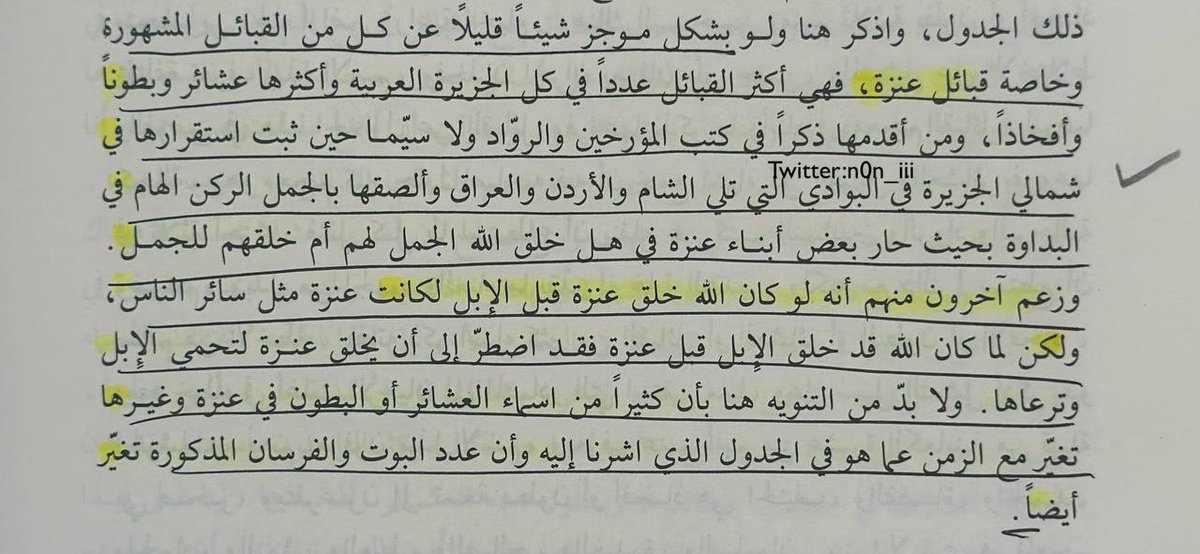 ذلك الجدول، واذكر هنا ولو بشكل موجز شيئاً قليلاً عن كل من القبائل المشهورة
وخاصة قبائل عنزة، فهي أكثر القبائل عدداً في كل الجزيرة العربية وأكثرها عشائر وبطوناً
وأفخاذاً، ومن أقدمها ذكراً في كتب المؤرخين والروّاد ولا سيّما حين ثبت استقرارها في
Twitter:n0n_iii
شمالي الجزيرة في البوادي التي تلي الشام والأردن والعراق وألصقها بالجمل الركن الهام في
البداوة بحيث حار بعض أبناء عنزة في هل خلق الله الجمل لهم أم خلقهم للجمل.
وزعم آخرون منهم أنه لو كان الله خلق عنزة قبل الإبل لكانت عنزة مثل سائر الناس،
ولكن لما كان الله قد خلق الإبل قبل عنزة فقد اضطرّ إلى أن يخلق عنزة لتحمي الإبل
وترعاها. ولا بدّ من التنويه هنا بأن كثيراً من اسماء العشائر أو البطون في عنزة وغيرها
تغيّر مع الزمن عما هو في الجدول الذي اشرنا إليه وأن عدد البوت والفرسان المذكورة تغيّر
أيضاً.